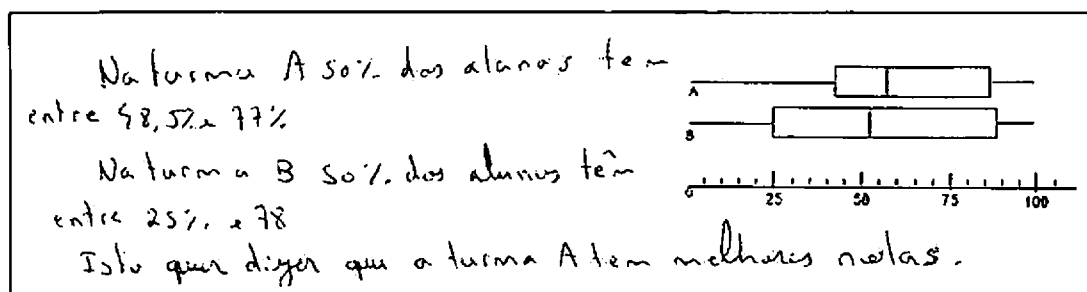 Na turma A 50% dos alunos tem
entre 48,5% e 77%
Na turma B 50% dos alunos têm
entre 25% e 78
Isto quer dizer que a turma A tem melhores notas.
A
B
0 25 50 75 100